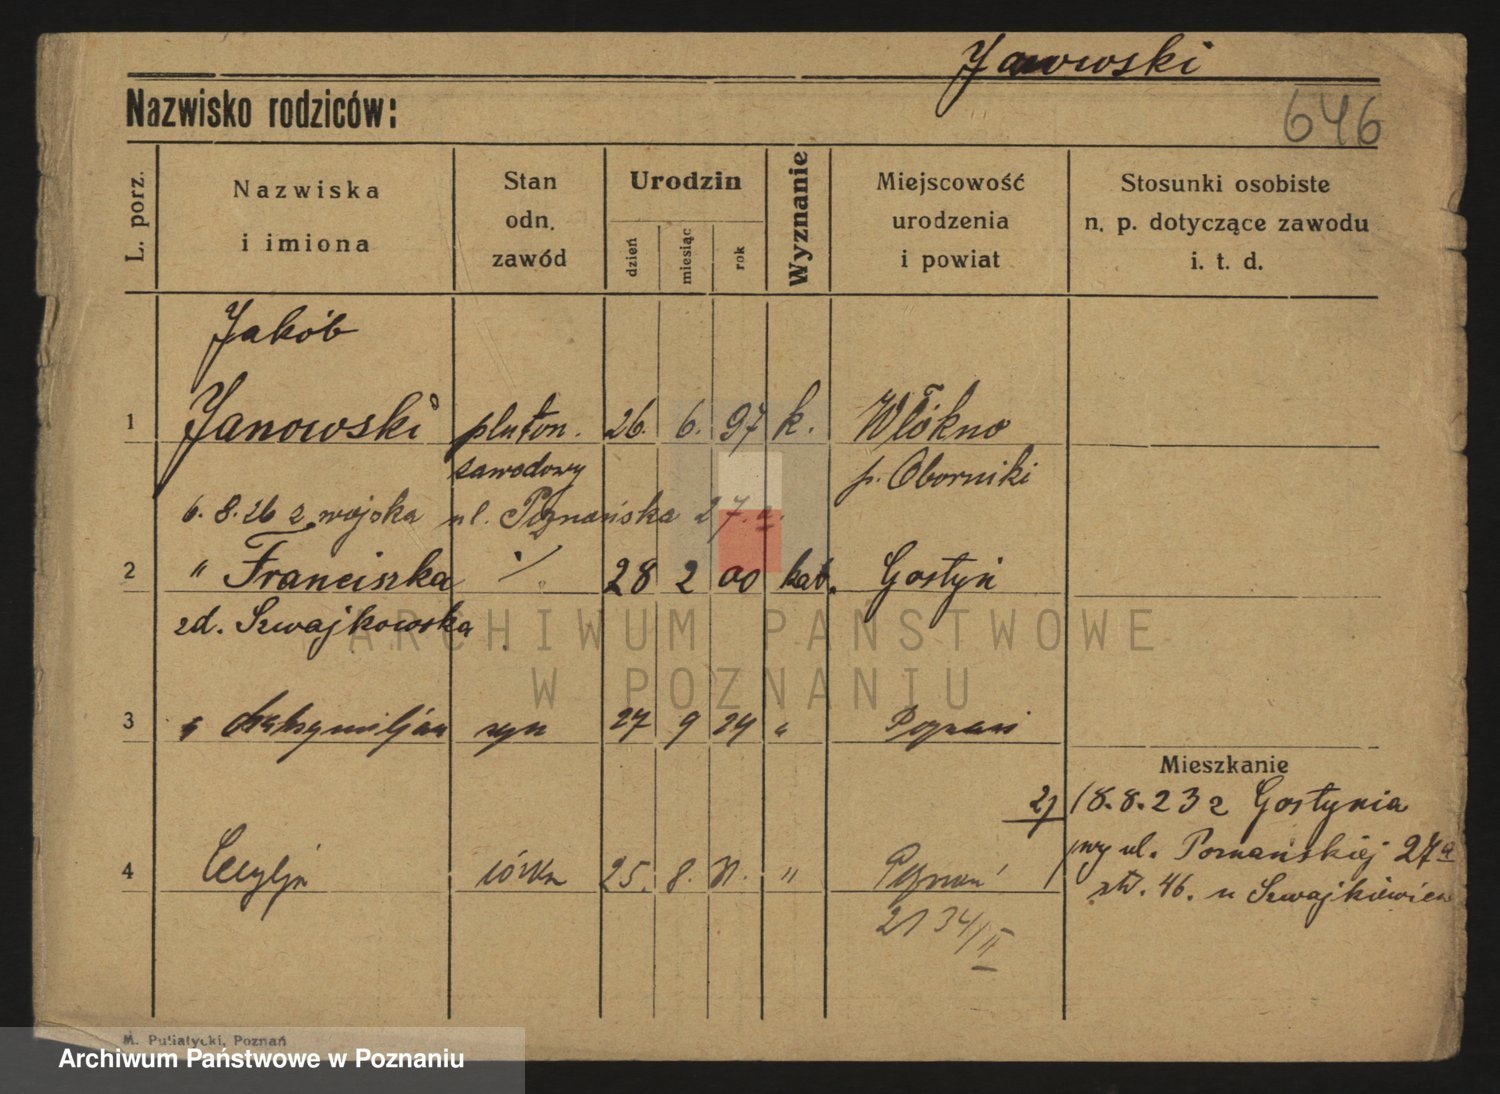 Janowski
Nazwisko rodziców:
646
L. porz.
Nazwiska
i imiona
Stan
odn.
zawód
Urodzin
dzień
miesiąc
rok
Wyznanie
Miejscowość
urodzenia
i powiat
Stosunki osobiste
n. p. dotyczące zawodu
i. t. d.
Jakób
1 Janowski pluton. 26. 6. 97 k. Włókno
zawodowy p. Oborniki
6.8.26 z wojska ul. Poznańska 27.a.
2 " Franciszka ·/. 28 2 00 kat. Gostyń
zd. Szwajkowska
ARCHIWUM PAŃSTWOWE
W POZNANIU
3 " Maksymiljan syn 27 9 24 " Poznań
Mieszkanie
18.8.23 z Gostynia
przy ul. Poznańskiej 27a
4 Cecylja córka 25. 8. " Poznań
ptr. 46. u Szwajkiewicz
2134/II
M. Putiatycki, Poznań
Archiwum Państwowe w Poznaniu